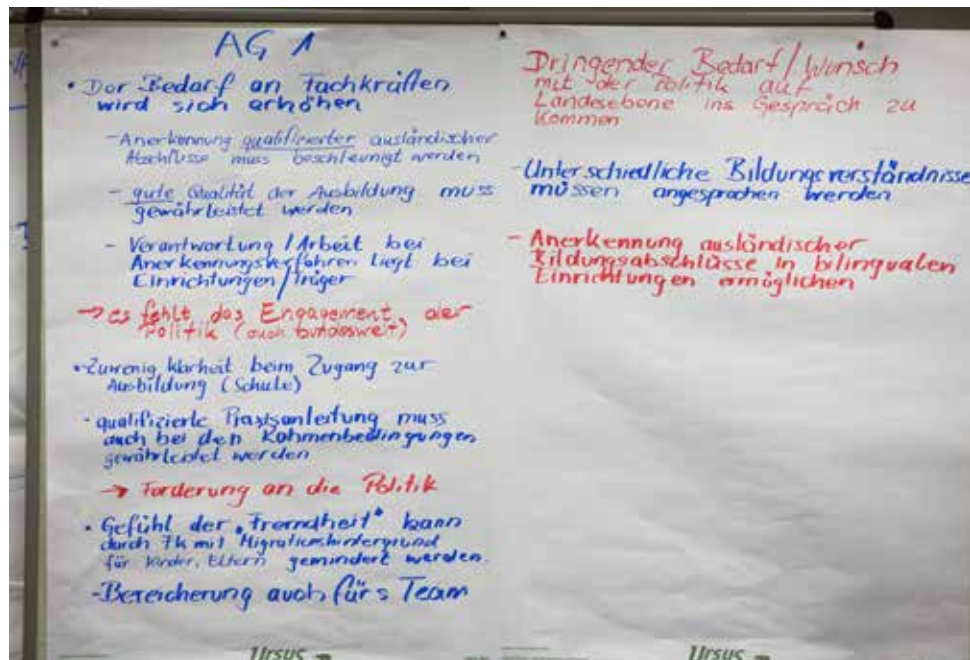 AG 1
• Der Bedarf an Fachkräften
wird sich erhöhen
- Anerkennung qualifizierter ausländischer
Abschlüsse muss beschleunigt werden
- gute Qualität der Ausbildung muss
gewährleistet werden
- Verantwortung / Arbeit bei
Anerkennungsverfahren liegt bei
Einrichtungen / Träger
→ es fehlt das Engagement der
Politik (auch bundesweit)
• Zuwenig Klarheit beim Zugang zur
Ausbildung (Schule)
- qualifizierte Praxisanleitung muss
auch bei den Rahmenbedingungen
gewährleistet werden
→ Forderung an die Politik
• Gefühl der „Fremdheit“ kann
durch Fk mit Migrationshintergrund
für Kinder, Eltern gemindert werden.
- Bereicherung auch für's Team
Ursus
Dringender Bedarf / Wunsch
mit der Politik auf
Landesebene ins Gespräch zu
kommen
- Unterschiedliche Bildungsverständnisse
müssen angesprochen werden
- Anerkennung ausländischer
Bildungsabschlüsse in bilingualen
Einrichtungen ermöglichen
Ursus